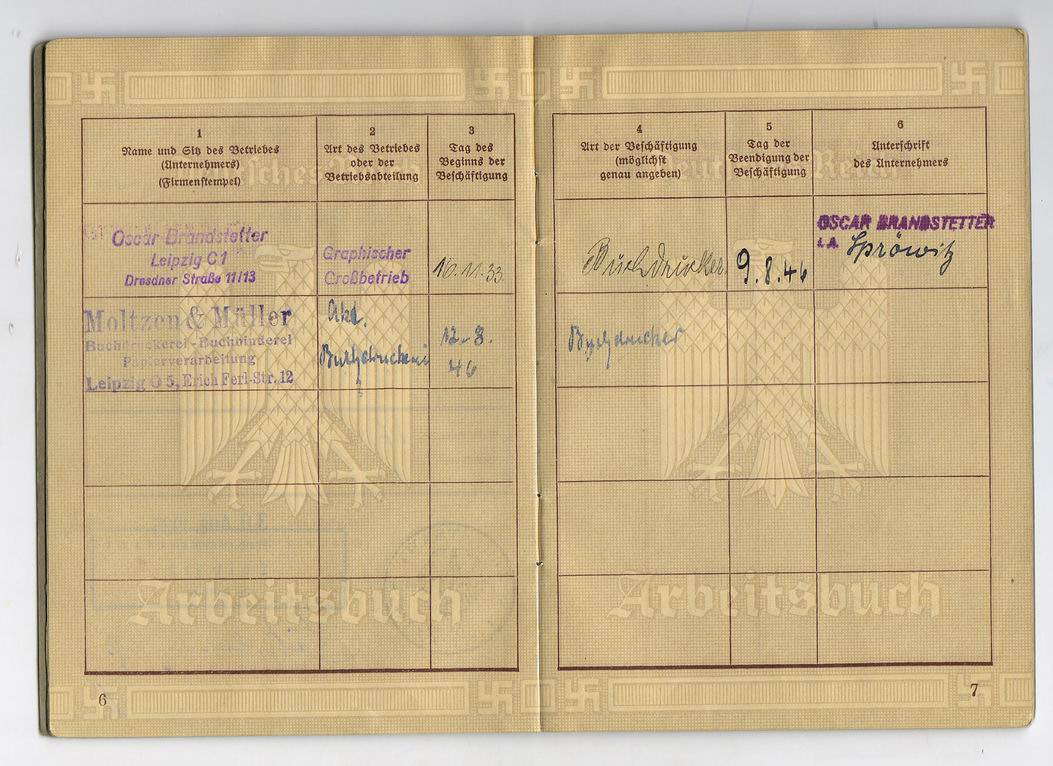 1
Name und Sitz des Betriebes
(Unternehmers)
(Firmenstempel)
2
Art des Betriebes
oder der
Betriebsabteilung
3
Tag des
Beginns der
Beschäftigung
Oscar Brandstetter
Leipzig C1
Dresdner Straße 11/13
Graphischer
Großbetrieb
10.11.33.
Moltzen & Müller
Buchdruckerei-Buchbinderei
Papierverarbeitung
Leipzig O 5, Erich Ferl-Str. 12
Buchdruckerei
12.8.
46
Arbeitsbuch
6
4
Art der Beschäftigung
(möglichst
genau angeben)
5
Tag der
Beendigung der
Beschäftigung
6
Unterschrift
des Unternehmers
Deutsches Reich
Buchdrucker
9.8.46
OSCAR BRANDSTETTER
i.A.
Buchdrucker
Arbeitsbuch
7